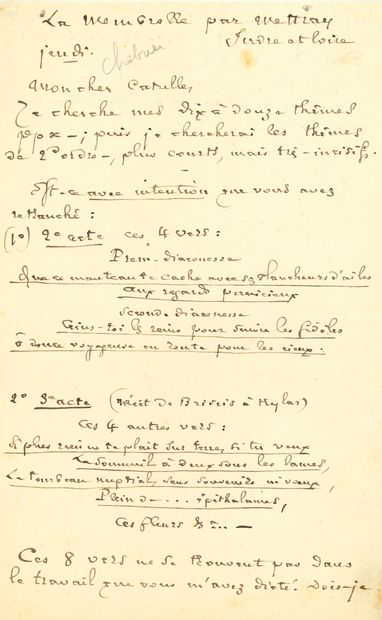 La Membrolle par Mettray
Indre et Loire
jeudi.
Mon cher Catulle,
Je cherche mes dix à douze thèmes
ppx —; puis je chercherai les thèmes
de 2e ordre —, plus courts, mais très-incisifs.
Est-ce avec intention que vous avez
retranché :
(1o) 2e acte ces 4 vers :
Prem- diaconesse
Que ce manteau te cache avec ses blancheurs d'ailes
aux regards pernicieux
seconde diaconesse
Ceins-toi les reins pour suivre les fidèles
ô douce voyageuse en route pour les cieux :
2o 3e acte (Récit de Briséis à Hylas)
Ces 4 autres vers :
Si plus rien ne te plaît sur terre, si tu veux
Le sommeil à deux sous les lames,
Le tombeau nuptial, sans souvenirs ni vœux,
Plein de . . . épithalames,
Ces fleurs &c... —
Ces 8 vers ne se trouvent pas dans
le travail que vous m'avez dicté. Dois-je